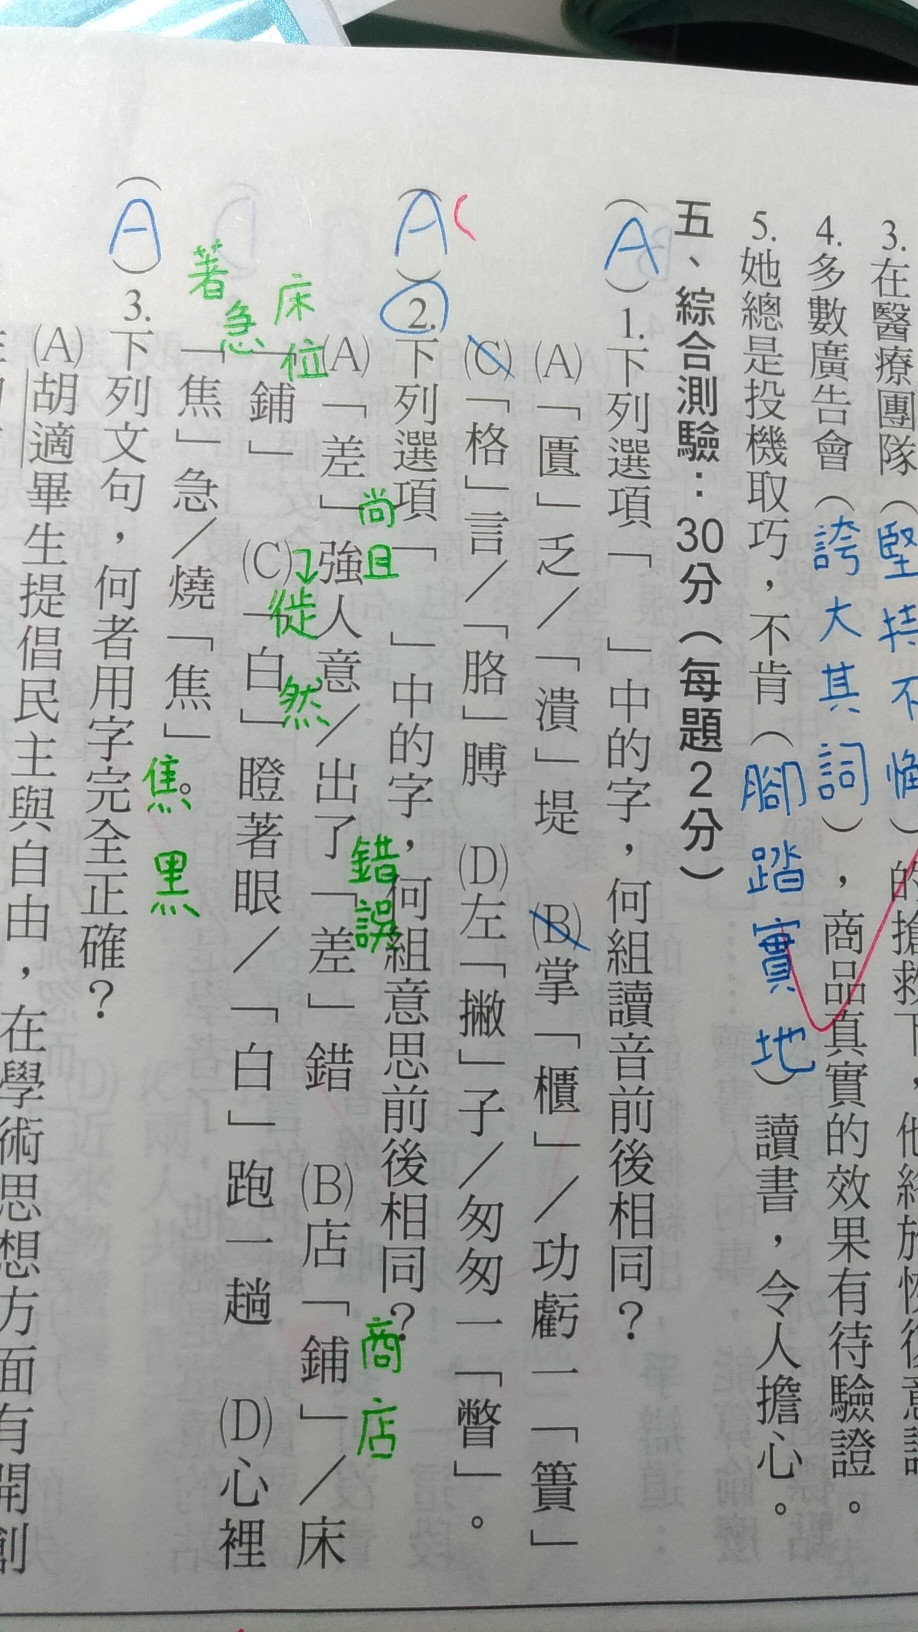 3.在醫療團隊（堅持不懈）的搶救下，他終於恢復意識
4.多數廣告會（誇大其詞），商品真實的效果有待驗證。
5.她總是投機取巧，不肯（腳踏實地）讀書，令人擔心。
五、綜合測驗：30分（每題2分）
（A）1.下列選項「　」中的字，何組讀音前後相同？
(A)「匱」乏／「潰」堤　(B)掌「櫃」／功虧一「簣」
(C)「格」言／「胳」膊　(D)左「撇」子／匆匆一「瞥」。
（A）2.下列選項「　」中的字，何組意思前後相同？
尚且
錯誤
商店
(A)「差」強人意／出了「差」錯　(B)店「鋪」／床
床位
「鋪」　(C)「白」瞪著眼／「白」跑一趟　(D)心裡
徒然
著急
「焦」急／燒「焦」。
焦黑
（A）3.下列文句，何者用字完全正確？
(A)胡適畢生提倡民主與自由，在學術思想方面有開創